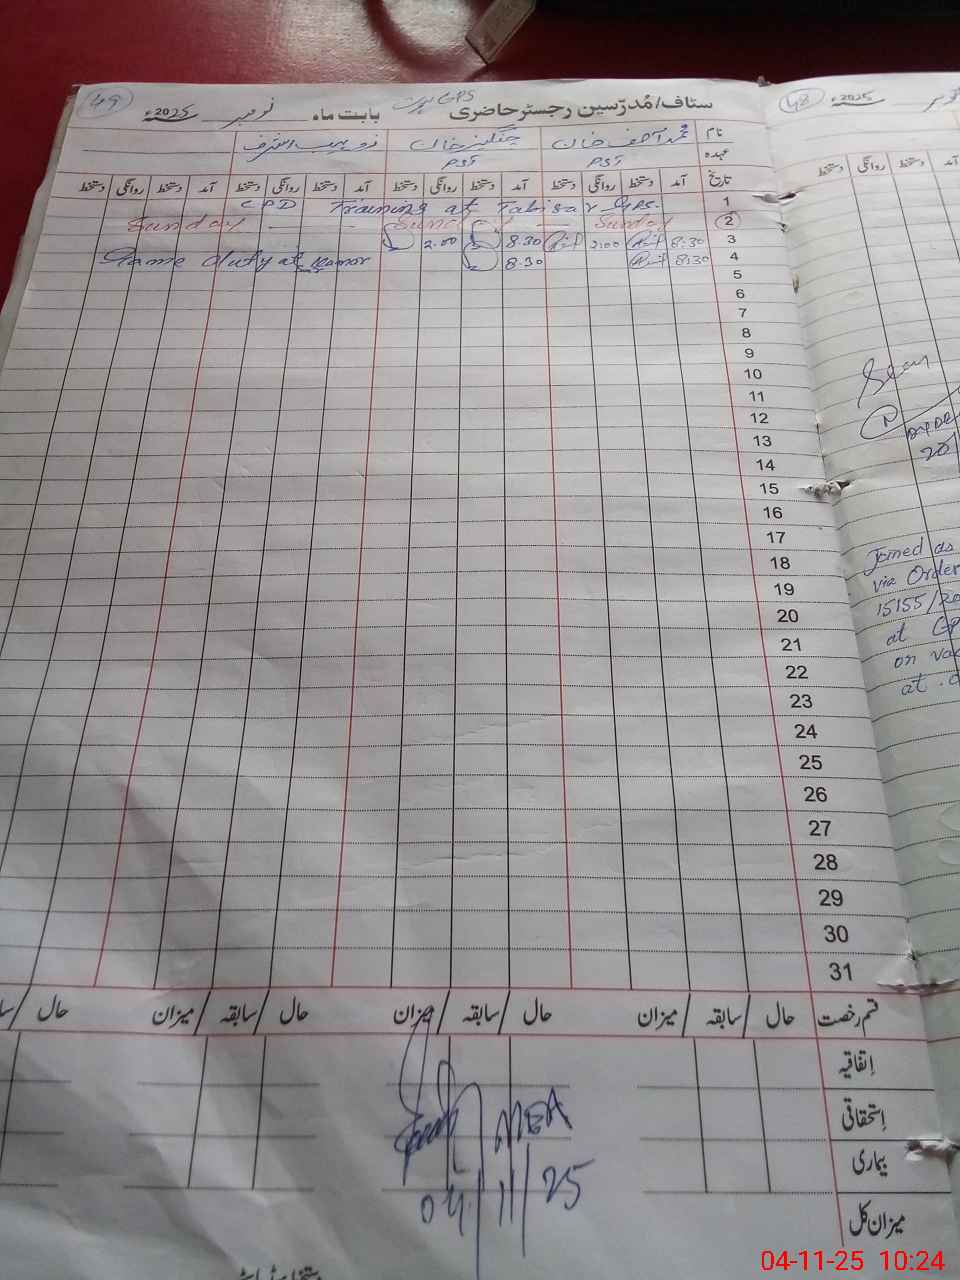 49
GPS
ستاف/مُدرّسین رجسٹر حاضری
بابت ماہ نومبر 2025ء
نام محمد آصف خان چنگیز خان زوہیب اشرف
عہدہ PST PST
تاریخ آمد دستخط روانگی دستخط آمد دستخط روانگی دستخط آمد دستخط روانگی دستخط آمد دستخط روانگی دستخط
1 CPD Training at Tabisar GPS.
2 Sunday Sunday Sunday
3 8:30 2:00 8.30 2.00
4 8:30 8.30 Game duty at Kamar
5
6
7
8
9
10
11
12
13
14
15
16
17
18
19
20
21
22
23
24
25
26
27
28
29
30
31
قسم رخصت حال / سابقہ / میزان حال / سابقہ / میزان حال / سابقہ / میزان حال /
اِتفاقیہ
اِستحقاقی
بیماری
میزان کل
MEA
04/11/25
48
2025ء
دستخط
روانگی
دستخط
Joined as
via Order
15155/20
at GP
on vac
at
04-11-25 10:24